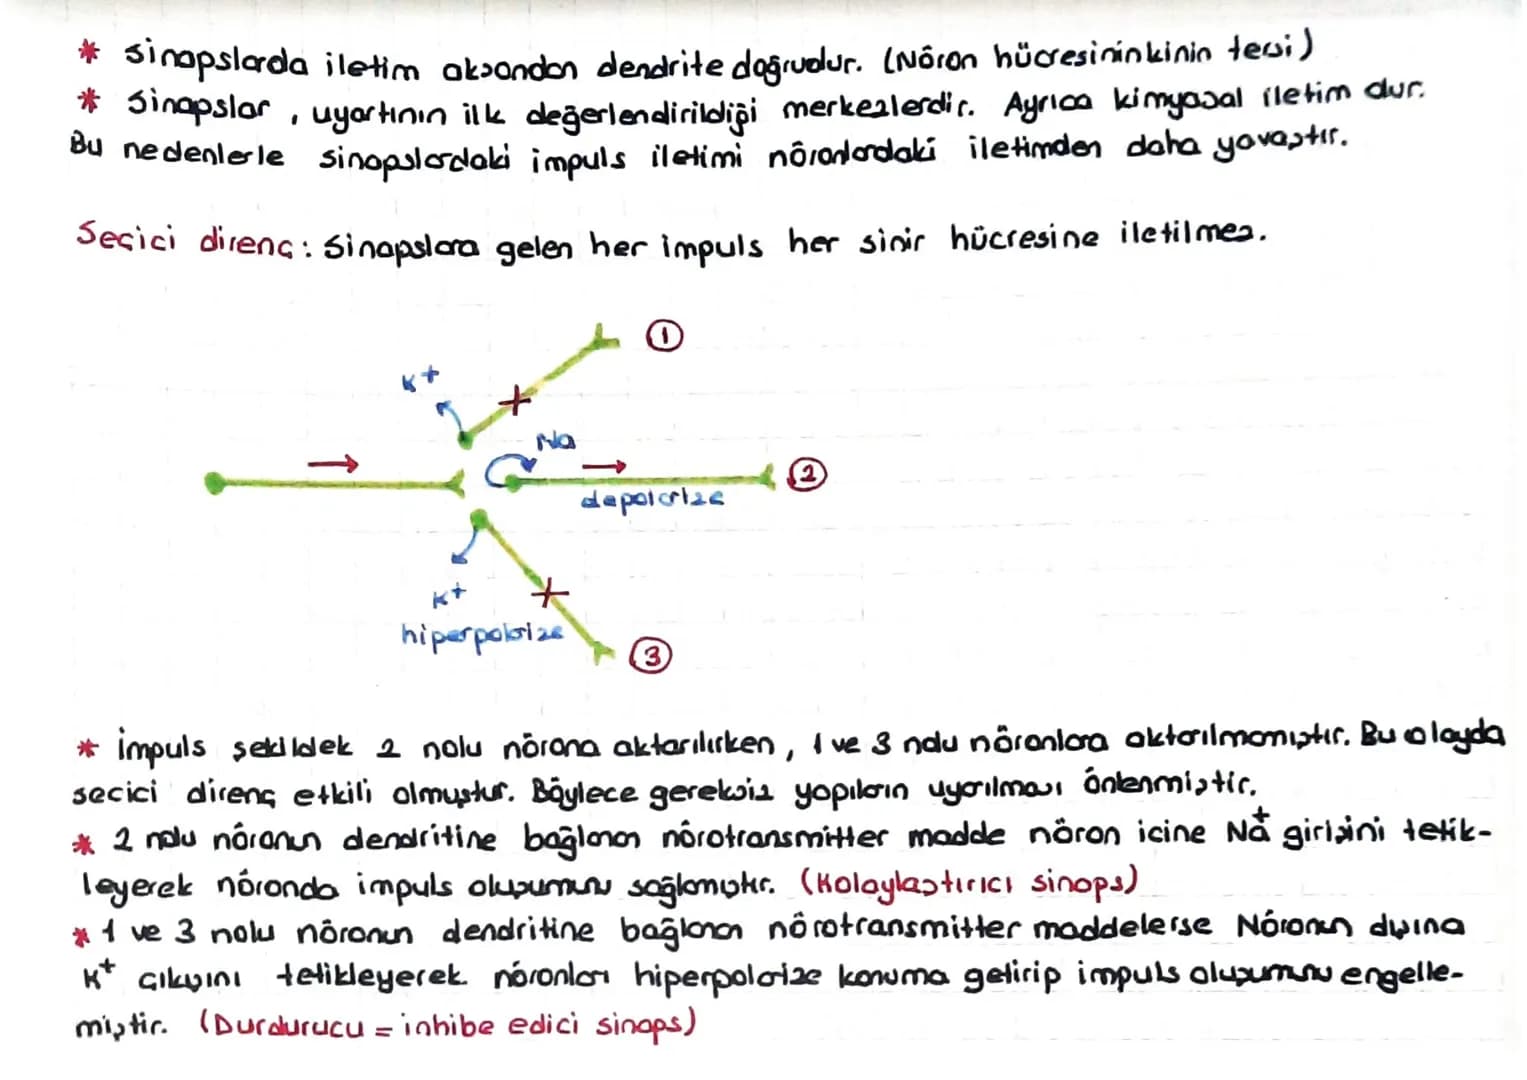 * Sinapslarda iletim aksondan dendrite doğrudur. (Nöron hücresininkinin tersi)
* Sinapslar, uyartının ilk değerlendirildiği merkezlerdir. Ayrıca kimyasal iletim dur.
Bu nedenlerle sinapslardaki impuls iletimi nöronlardaki iletimden daha yavaştır.
Seçici direnç: Sinapslara gelen her impuls her sinir hücresine iletilmez.
1
K+
Na
2
depolarize
K+
hiperpolarize
3
* İmpuls şekildek 2 nolu nörona aktarılırken, 1 ve 3 nolu nöronlara aktarılmamıştır. Bu olayda
secici direnç etkili olmuştur. Böylece gereksiz yapıların uyarılması önlenmiştir.
* 2 nolu nöronun dendritine bağlanan nörotransmitter madde nöron icine Na+ girişini tetik-
leyerek nöronda impuls oluşumunu sağlamıştır. (Kolaylaştırıcı sinaps)
* 1 ve 3 nolu nöronun dendritine bağlanan nörotransmitter maddelerse Nöronun dışına
K+ çıkışını tetikleyerek nöronları hiperpolarize konuma getirip impuls oluşumunu engelle-
miştir. (Durdurucu = inhibe edici sinaps)